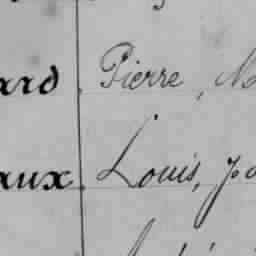 ard Pierre,
aux Louis,